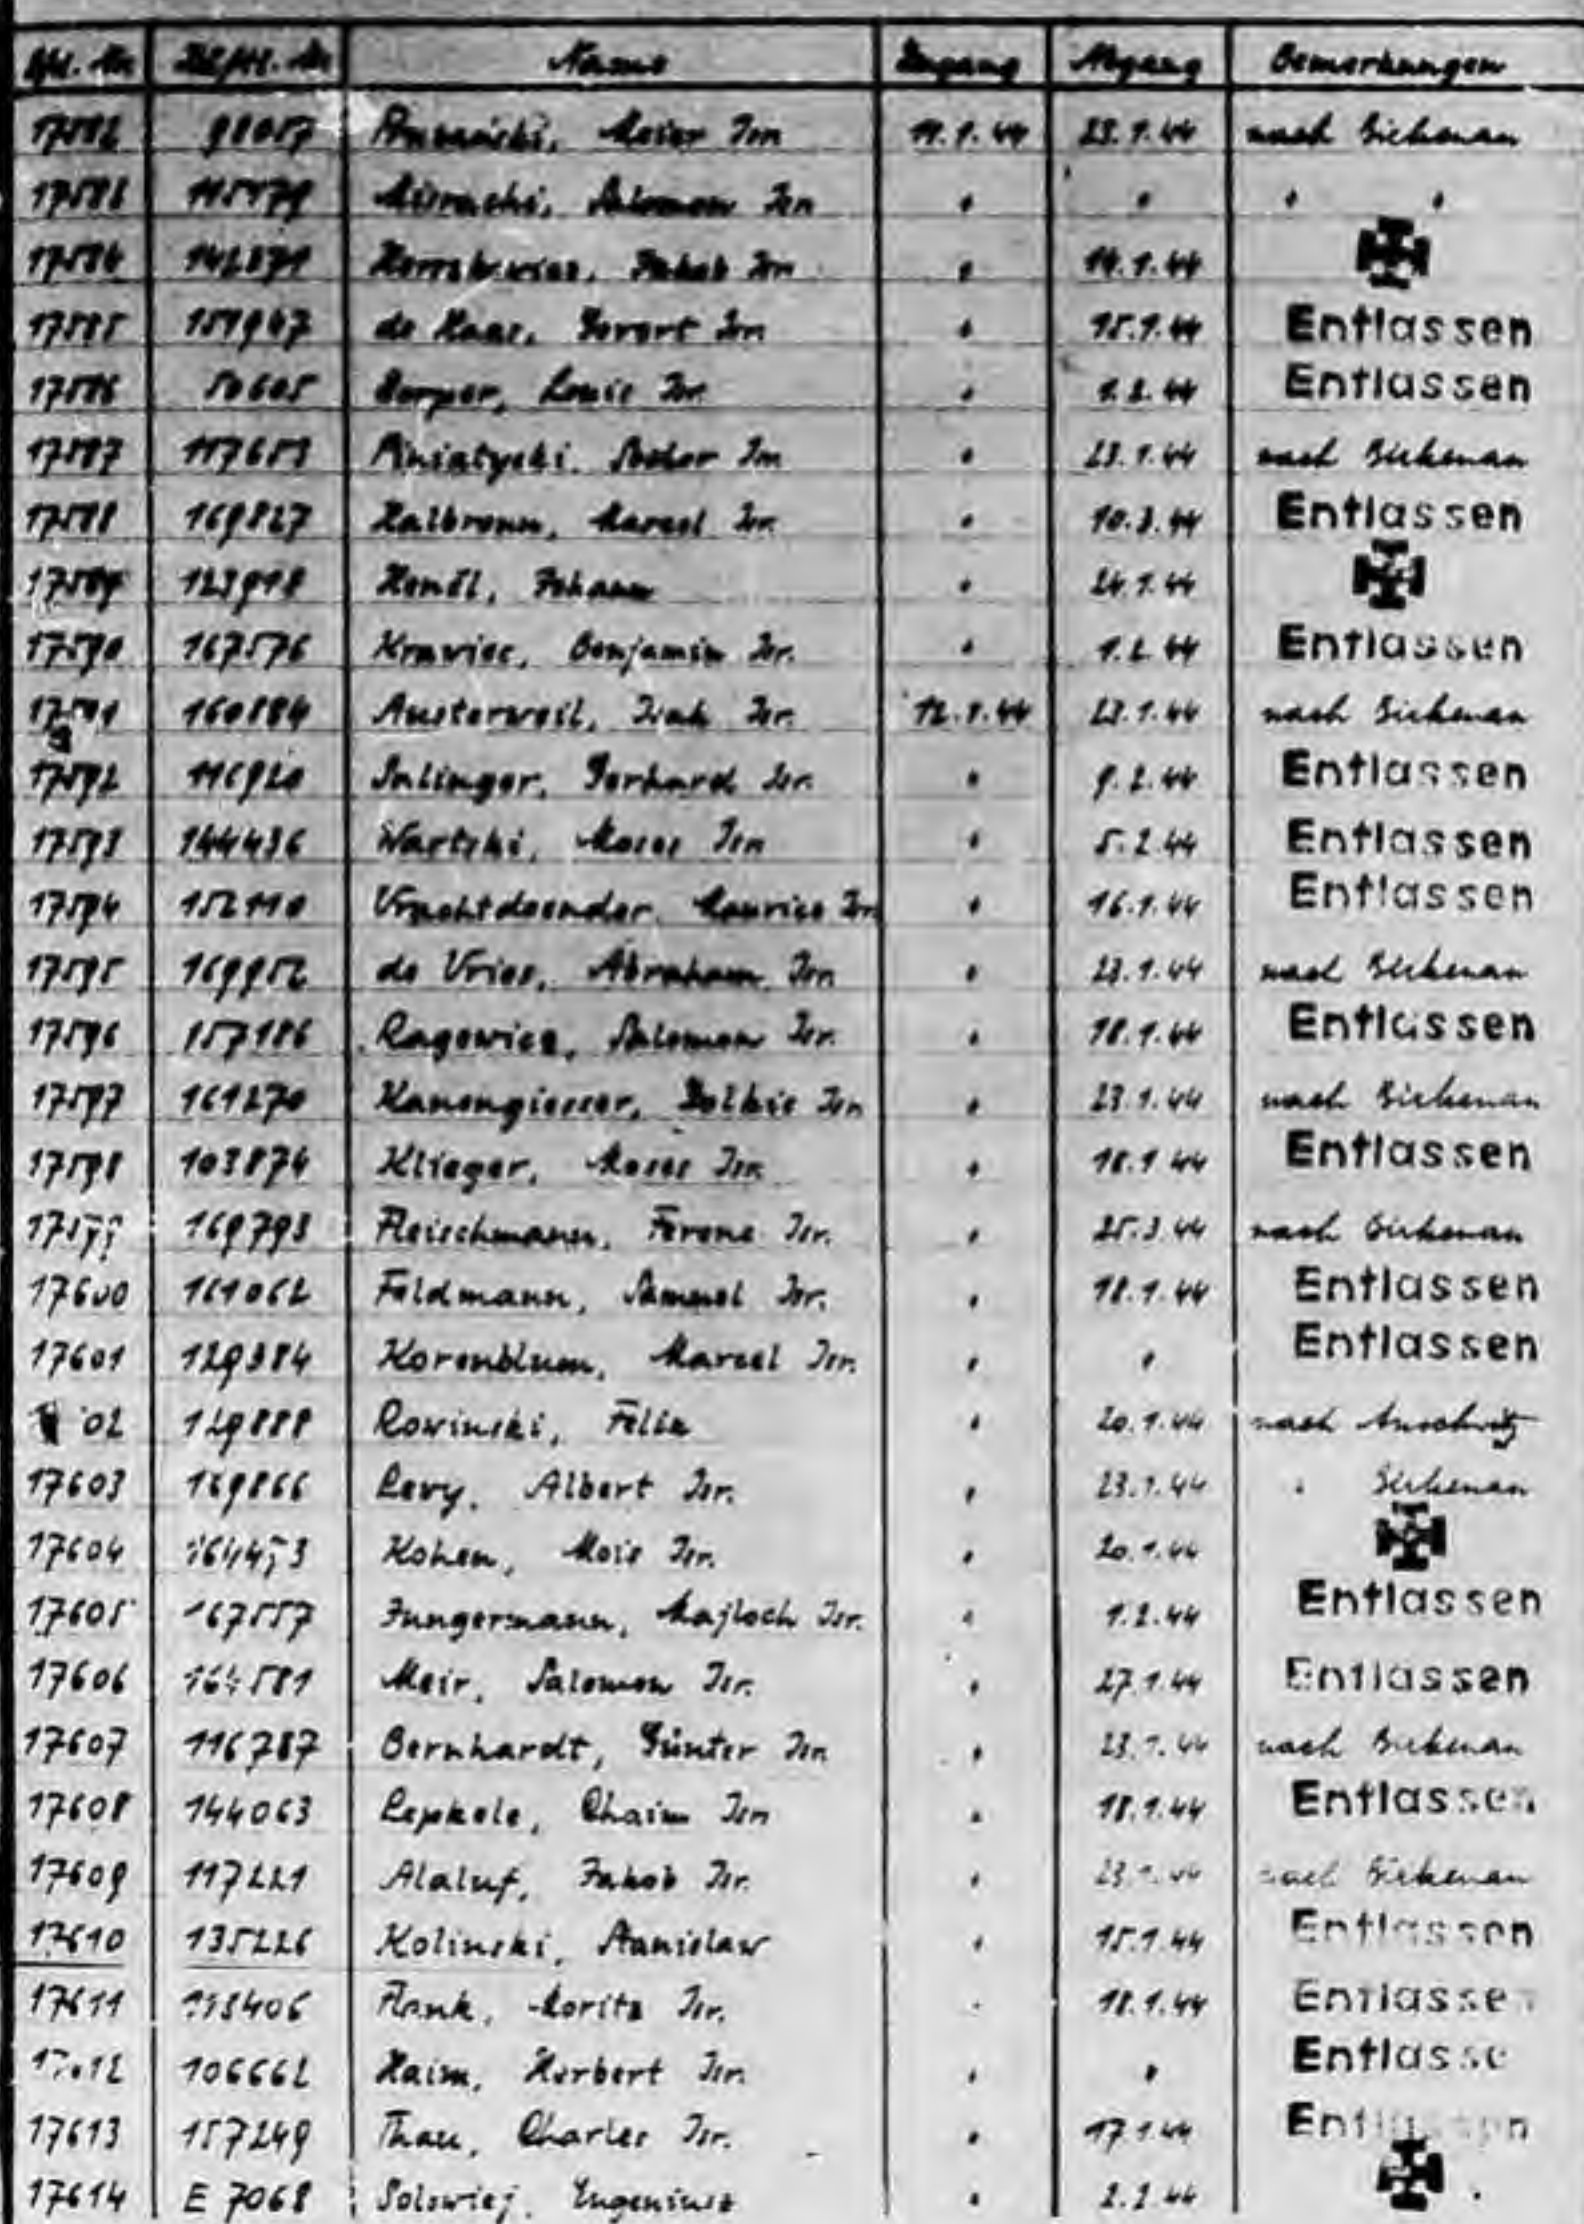 Lfd. Nr. Häftl. Nr. Name Zugang Abgang Bemerkungen
17582 98057 Meier Isr. 11.1.44 23.1.44 nach Birkenau
17583 115179 Misrachi, Salomon Isr. " " " "
17584 142871 Jakob Isr. " 14.1.44
17585 151967 de Haas, Gerert Isr. " 15.1.44 Entlassen
17586 50605 Louis Isr. " 1.2.44 Entlassen
17587 117653 Isr. " 23.1.44 nach Birkenau
17588 169827 Halbronn, Marcel Isr. " 10.3.44 Entlassen
17589 123918 Hendl, Johann " 24.1.44
17590 167576 Krawiec, Benjamin Isr. " 1.2.44 Entlassen
17591 160884 Austerweil, Isr. 12.1.44 23.1.44 nach Birkenau
17592 116920 Inlinger, Gerhard Isr. " 9.2.44 Entlassen
17593 144436 Wartski, Moses Isr. " 5.2.44 Entlassen
17594 152110 Vrachtdoender, Maurice Isr. " 16.1.44 Entlassen
17595 169952 de Vries, Abraham Isr. " 23.1.44 nach Birkenau
17596 157186 Ragowicz, Salomon Isr. " 18.1.44 Entlassen
17597 161270 Kanengiesser, Isr. " 23.1.44 nach Birkenau
17598 103874 Klieger, Moses Isr. " 18.1.44 Entlassen
17599 169793 Fleischmann, Ferenc Isr. " 25.3.44 nach Birkenau
17600 161062 Feldmann, Samuel Isr. " 18.1.44 Entlassen
17601 129384 Korenblum, Marcel Isr. " " Entlassen
02 129888 Rowinski, Felix " 20.1.44 nach Auschwitz
17603 169866 Levy, Albert Isr. " 23.1.44 " Birkenau
17604 Kohen, Mois Isr. " 20.1.44
17605 167557 Jungermann, Majloch Isr. " 1.2.44 Entlassen
17606 164581 Meir, Salomon Isr. " 27.1.44 Entlassen
17607 116787 Bernhardt, Günter Isr. " 23.1.44 nach Birkenau
17608 144063 Lepkele, Chaim Isr. " 18.1.44 Entlassen
17609 117221 Alaluf, Jakob Isr. " 23.1.44 nach Birkenau
17610 135226 Kolinski, Stanislaw " 15.1.44 Entlassen
17611 Frank, Moritz Isr. " 18.1.44 Entlassen
17612 106662 Haim, Herbert Isr. " " Entlasse
17613 157249 Thau, Charles Isr. " 17.1.44 Entlassen
17614 E 7068 Solowiej, Eugeniusz " 2.2.44